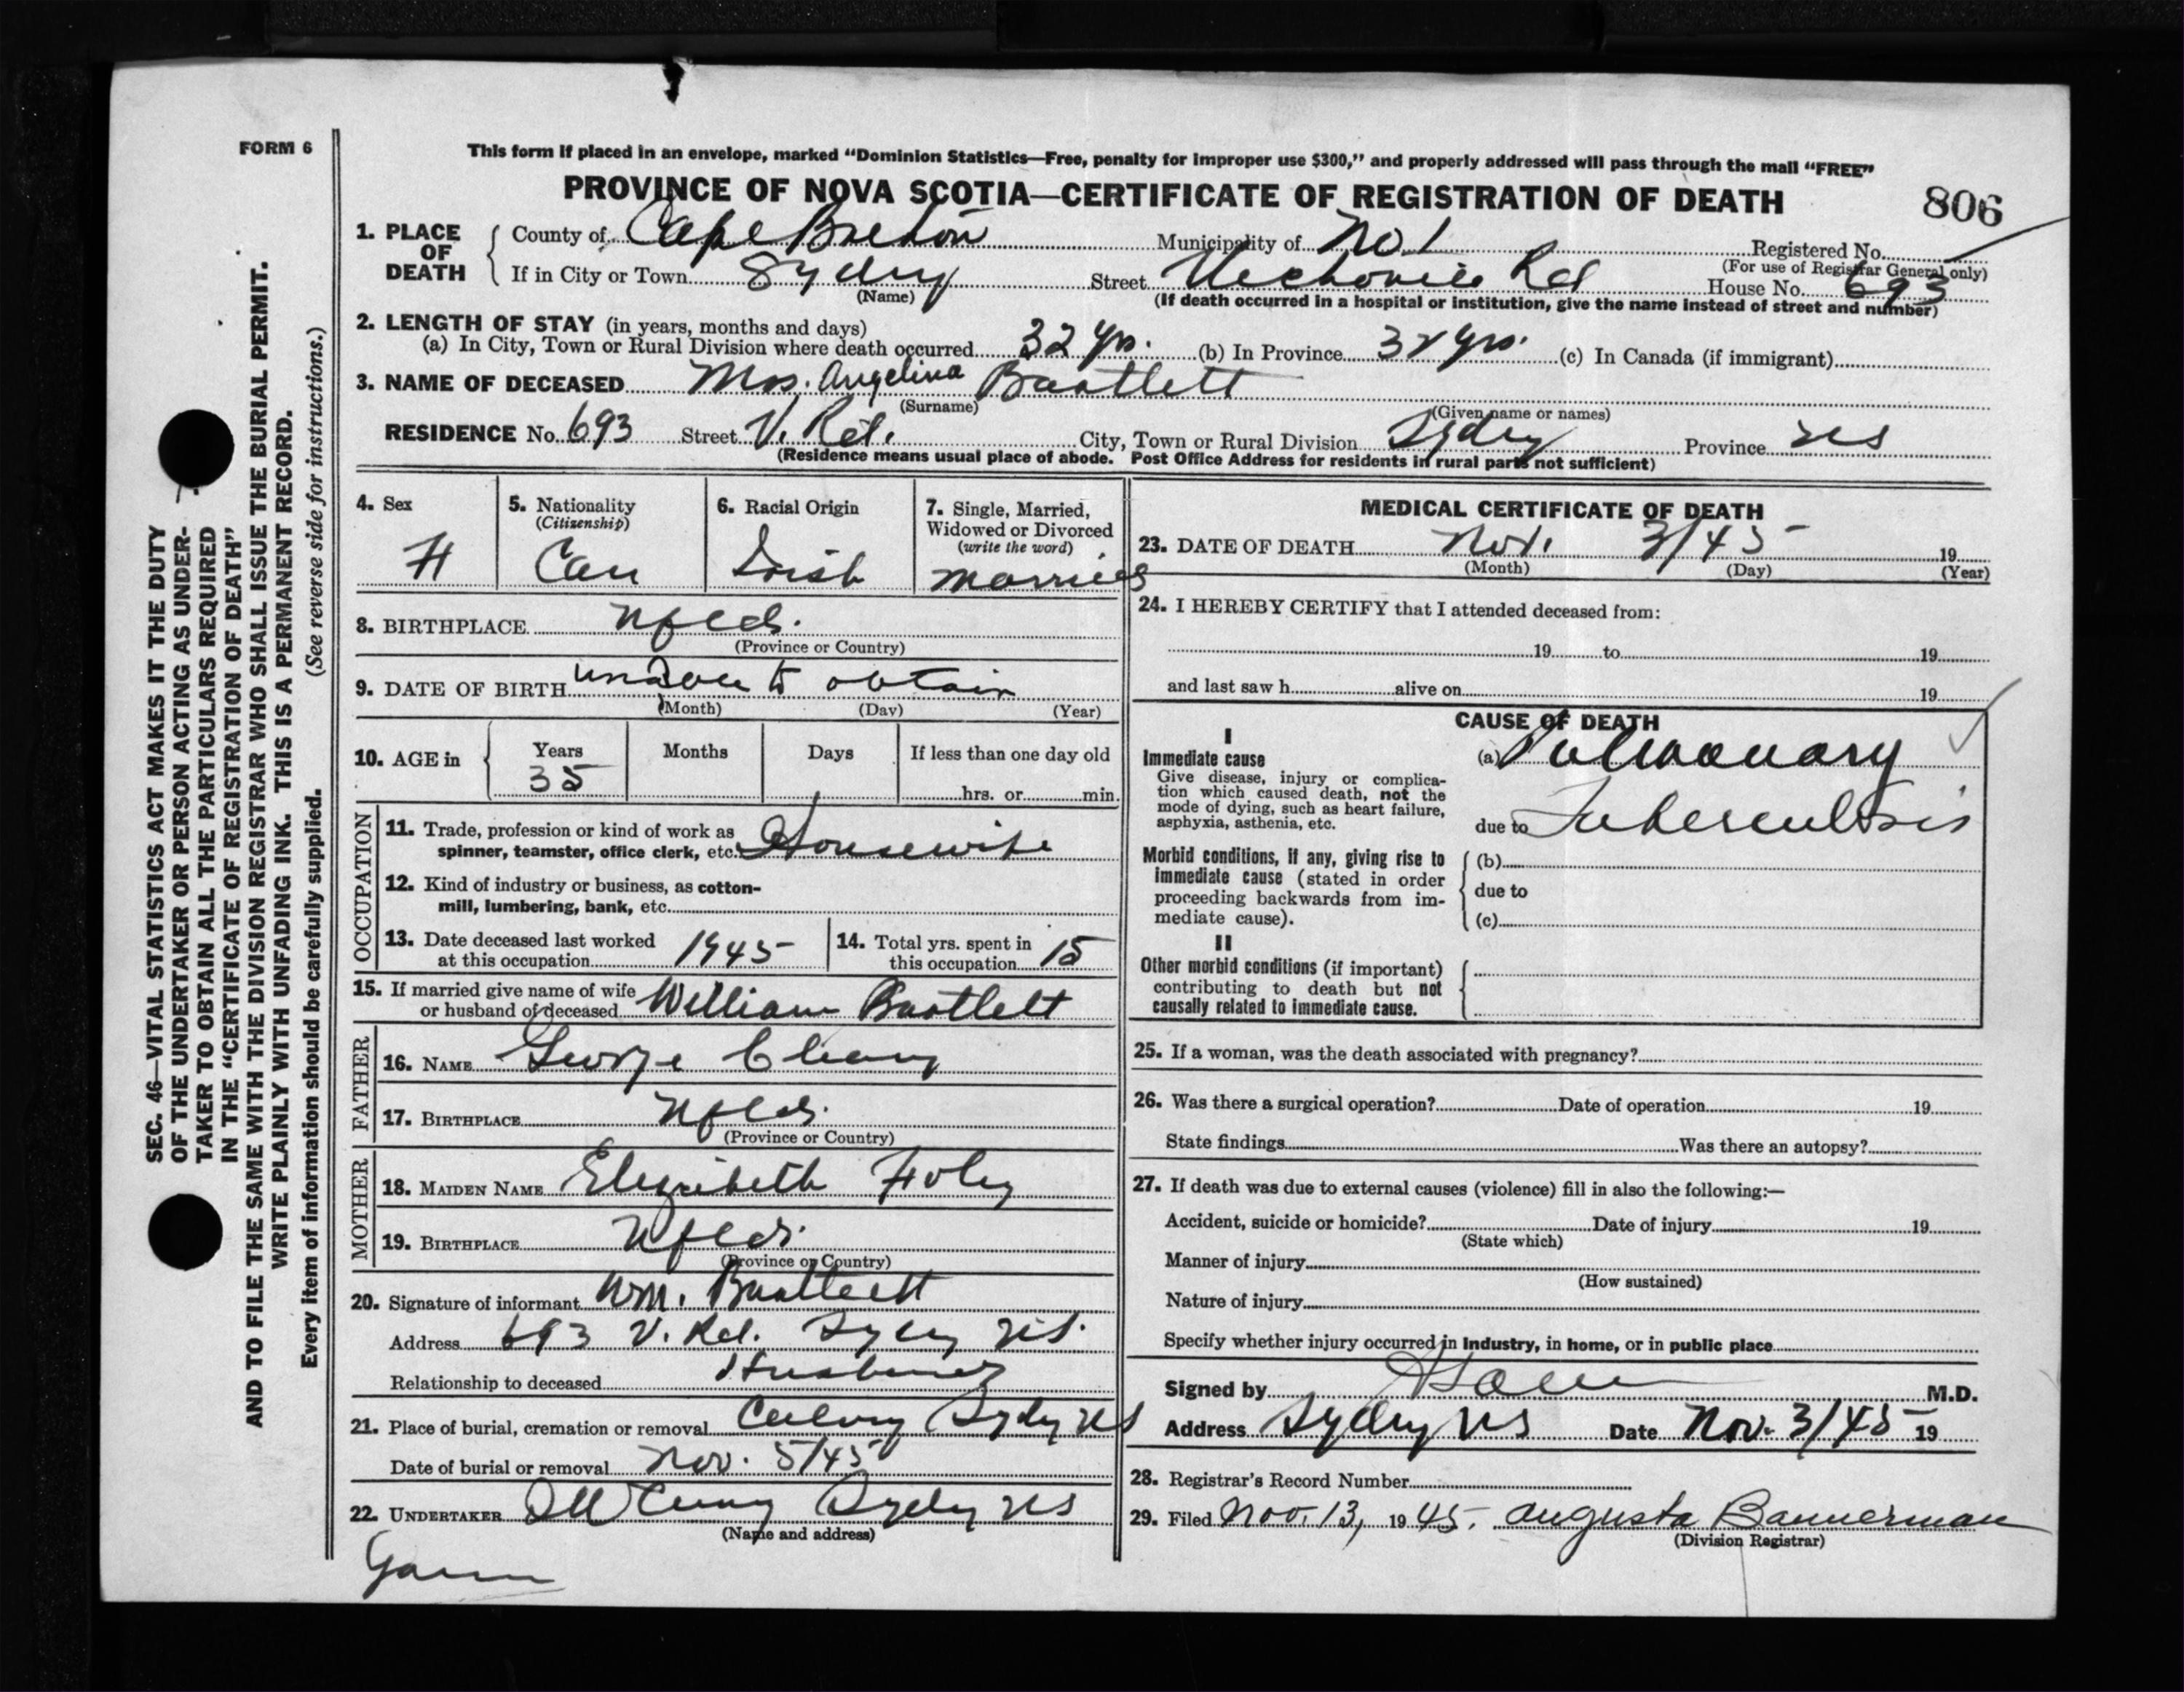 FORM 6
This form if placed in an envelope, marked “Dominion Statistics—Free, penalty for improper use $300,” and properly addressed will pass through the mail “FREE”
PROVINCE OF NOVA SCOTIA—CERTIFICATE OF REGISTRATION OF DEATH
806
1. PLACE OF DEATH
County of Cape Breton Municipality of No 1 Registered No.
(For use of Registrar General only)
If in City or Town Sydney Street Rd House No. 693
(Name) (If death occurred in a hospital or institution, give the name instead of street and number)
2. LENGTH OF STAY (in years, months and days)
(a) In City, Town or Rural Division where death occurred 32 yrs. (b) In Province 32 yrs. (c) In Canada (if immigrant)
3. NAME OF DECEASED Mrs. Angelina Bartlett
(Surname) (Given name or names)
RESIDENCE No. 693 Street V. Rd. City, Town or Rural Division Sydney Province NS
(Residence means usual place of abode. Post Office Address for residents in rural parts not sufficient)
4. Sex
F
5. Nationality
(Citizenship)
Can
6. Racial Origin
Irish
7. Single, Married,
Widowed or Divorced
(write the word)
married
8. BIRTHPLACE Nfld.
(Province or Country)
9. DATE OF BIRTH unable to obtain
(Month) (Day) (Year)
10. AGE in
Years Months Days If less than one day old
35
hrs. or min.
OCCUPATION
11. Trade, profession or kind of work as
spinner, teamster, office clerk, etc. Housewife
12. Kind of industry or business, as cotton-
mill, lumbering, bank, etc.
13. Date deceased last worked
at this occupation 1945
14. Total yrs. spent in
this occupation 15
15. If married give name of wife
or husband of deceased William Bartlett
FATHER
16. NAME George Cleary
17. BIRTHPLACE Nfld.
(Province or Country)
MOTHER
18. MAIDEN NAME Elizabeth Foley
19. BIRTHPLACE Nfld.
(Province or Country)
20. Signature of informant Wm. Bartlett
Address 693 V. Rd. Sydney NS.
Relationship to deceased Husband
21. Place of burial, cremation or removal Calvary Sydney NS
Date of burial or removal Nov. 5/45
22. UNDERTAKER Sydney NS
(Name and address)
MEDICAL CERTIFICATE OF DEATH
23. DATE OF DEATH Nov. 3/45 19
(Month) (Day) (Year)
24. I HEREBY CERTIFY that I attended deceased from:
19 to 19
and last saw h alive on 19
CAUSE OF DEATH
I
Immediate cause
Give disease, injury or complica-
tion which caused death, not the
mode of dying, such as heart failure,
asphyxia, asthenia, etc.
(a) Pulmonary
due to Tuberculosis
Morbid conditions, if any, giving rise to
immediate cause (stated in order
proceeding backwards from im-
mediate cause).
(b)
due to
(c)
II
Other morbid conditions (if important)
contributing to death but not
causally related to immediate cause.
25. If a woman, was the death associated with pregnancy?
26. Was there a surgical operation? Date of operation 19
State findings Was there an autopsy?
27. If death was due to external causes (violence) fill in also the following:—
Accident, suicide or homicide? Date of injury 19
(State which)
Manner of injury
(How sustained)
Nature of injury
Specify whether injury occurred in industry, in home, or in public place
Signed by M.D.
Address Sydney NS Date Nov. 3/45 19
28. Registrar's Record Number
29. Filed Nov. 13, 1945. Augusta Bannerman
(Division Registrar)
SEC. 46—VITAL STATISTICS ACT MAKES IT THE DUTY
OF THE UNDERTAKER OR PERSON ACTING AS UNDER-
TAKER TO OBTAIN ALL THE PARTICULARS REQUIRED
IN THE “CERTIFICATE OF REGISTRATION OF DEATH”
AND TO FILE THE SAME WITH THE DIVISION REGISTRAR WHO SHALL ISSUE THE BURIAL PERMIT.
WRITE PLAINLY WITH UNFADING INK. THIS IS A PERMANENT RECORD.
Every item of information should be carefully supplied. (See reverse side for instructions.)